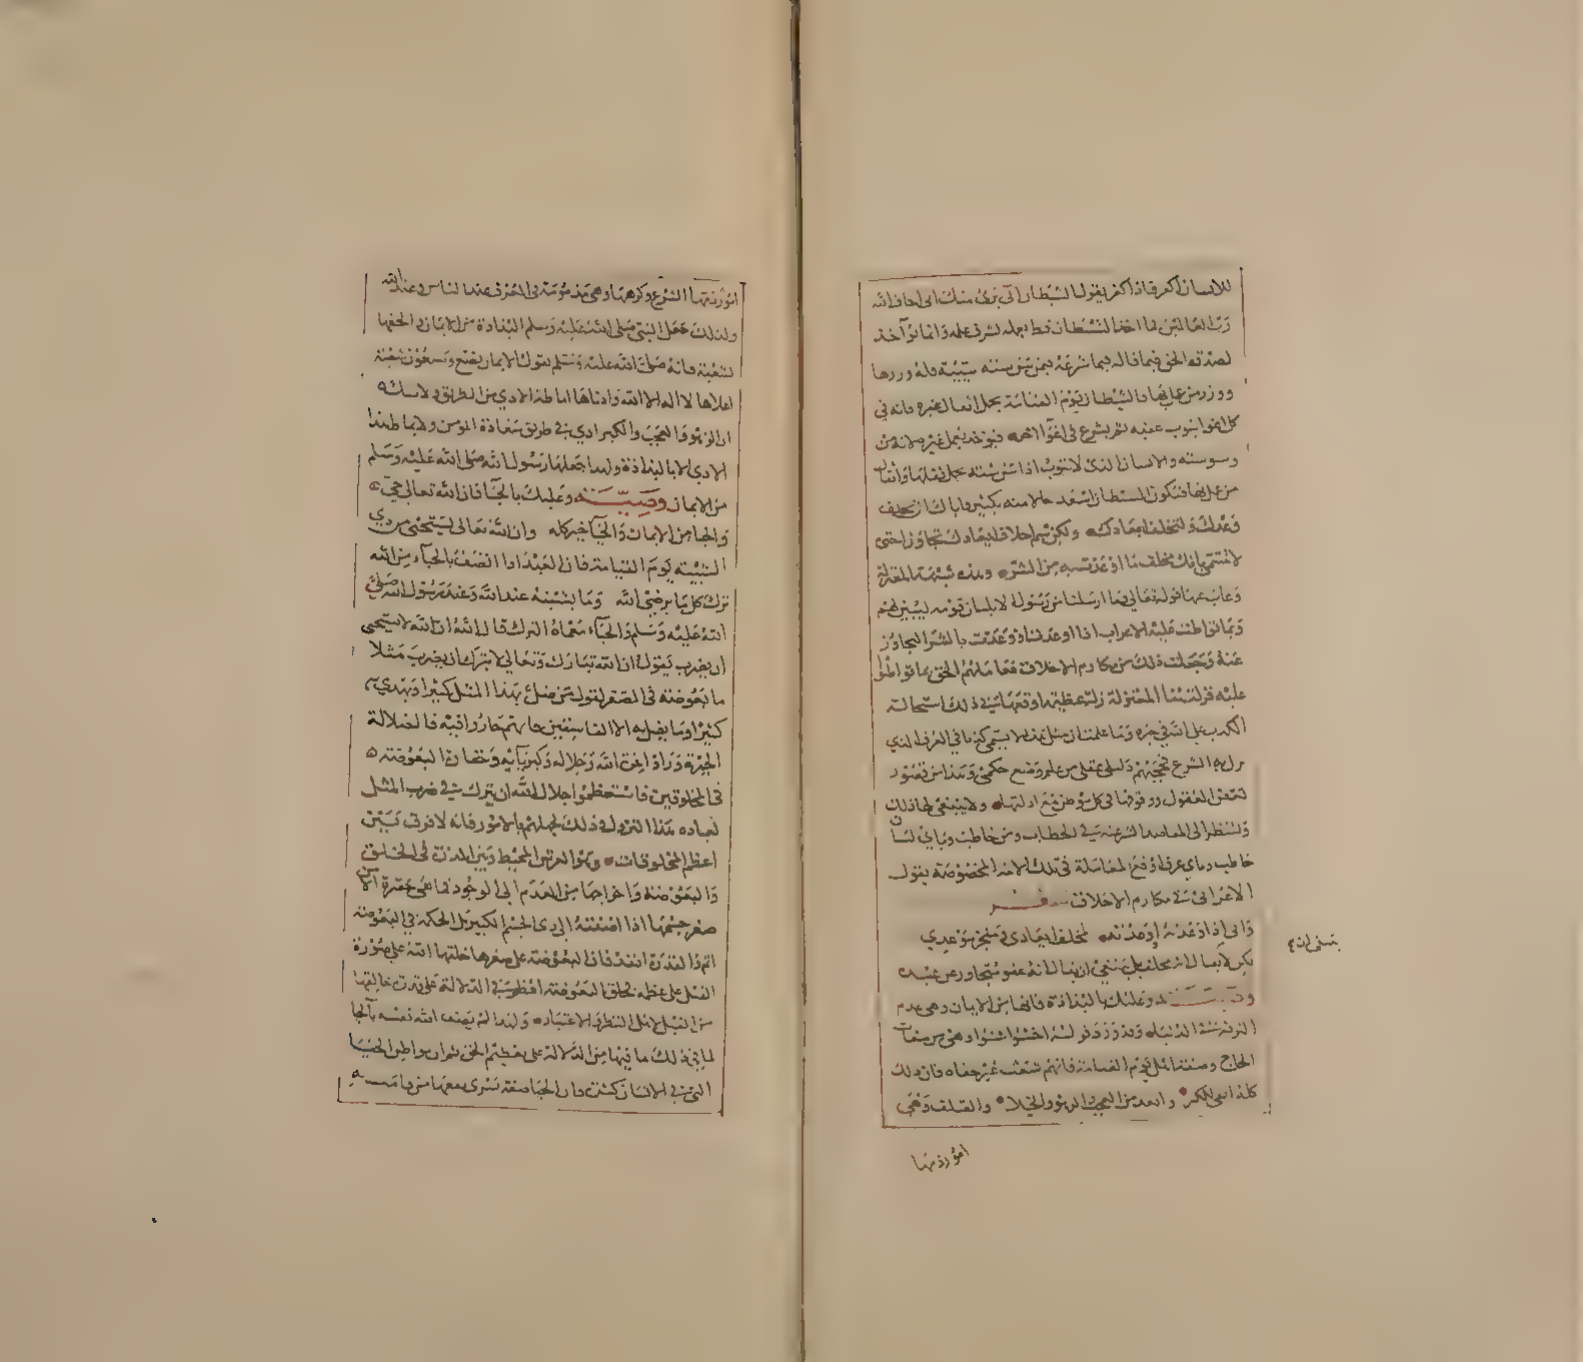 للانسان اكفر فاذا كفر يقول الشيطان اني بري منك اني اخاف الله
رب العالمين فما اخذ الشيطان قط بعمله لشرف علمه وانما يؤآخذ
لصدقه الحق فيما قاله فيما شرعه فيمن سن سنه سيئة فله وزرها
ووزر من عمل بها والشيطان يوم القيامة يحمل اثقال غيره فانه في
كل اغوا يتوب عقبه ثم يشرع في اغوا اخر فيؤخذ بعمل غيره لانه من
وسوسته والانسان الذي لا يتوب اذا سن سنه يحمل ثقلها واثقال
من عمل بها فيكون الشيطان اسعد حالا منه بكثير واياك ان تخلف
وعدك ولتخلف ايعادك ولكن سم اخلاف ايعادك تجاوزا حتى
لا تتسمى بانك مخلف ما اوعدت به من الشر وهذه شبهة المعتزلة
وغاب عنها قوله تعالى وما ارسلنا من رسول الا بلسان قومه ليبين لهم
ومما تواطت عليه الاعراب اذا اوعدت او وعدت بالشر التجاوز
عنه وجعلت ذلك من مكارم الاخلاق فعاملهم الحق بما تواطوا
عليه فزلت هنا المعتزلة زلة عظيمة اوقعها في ذلك استحالة
الكذب على الله في خبره وما علمت ان مثل هذا لا يسمى كذبا في العرف الذي
نزل به الشرع فحجبهم دليل عقلي عن علم وضع حكمي وهذا من قصور
بعض العقول ووقوفها في كل موطن مع ادلتها ولا ينبغي لها ذلك
ولتنظر الى المقاصد الشرعية في الخطاب ومن خاطب وباي لسان
خاطب وباي عرف اوقع المعاملة في تلك الامة المخصوصة يقول
الاعرابي في مكارم الاخلاق شعر
واني اذا اوعدته او وعدته لمخلف ايعادي ومنجز موعدي
لكن لا يقال انه مخلف بل ينبغي ان يقال انه عفو متجاوز عن عبده
وصية وعليك بالبذاذة فانها من الايمان وهي عدم
الترفه في الدنيا وقد ورد قوله اخشوشنوا وهي من صفات
الحاج وصفة اهل يوم القيامة فانهم شعث غبر حفاه فان ذلك
كله انفى للكبر وابعد من العجب والزهو والخيلا والصلف وهي
امور ذمها
امور ذمها الشرع وكرهها وهي مذمومة في العرف عند الناس وعند الله
ولذلك جعل النبي صلى الله عليه وسلم البذاذة من الايمان والحقها
بشعبه فانه صلى الله عليه وسلم يقول الايمان بضع وسبعون شعبة
اعلاها لا اله الا الله وادناها اماطة الاذي عن الطريق ولا شك
ان الزهو والعجب والكبر اذي في طريق سعادة المومن ولا يماط هذا
الاذي الا بالبذاذة ولهذا جعلها رسول الله صلى الله عليه وسلم
من الايمان وصية وعليك بالحيا فان الله تعالى حيي
والحيا من الايمان والحيآ خير كله وان الله تعالى يستحيى من ذي
الشيبة يوم القيامة فان العبد اذا اتصف بالحيآء من الله
ترك كل ما لا يرضي الله وما يشينه عند الله وعند رسول الله صلى
الله عليه وسلم والحيآء معناه الترك قال الله ان الله لا يستحيى
ان يضرب يقول ان الله تبارك وتعالى لا يترك ان يضرب مثلا
ما بعوضة في الصغر لقول من ضل بهذا المثل كثيرا ويهدي به
كثيرا وما يضل به الا الفاسقين حاوتهم حاروا فيه فالضلالة
الحيرة وراوا عزة الله وجلاله وكبريآئه وحقارة البعوضة
في المخلوقين فاستعظموا جلال الله ان ينزل في ضرب المثل
لعباده هذا النزول وذلك لجهلهم بالامور فانه لا فرق بين
اعظم المخلوقات وهو العرش المحيط وبين الذرة في الخلق
والبعوضة واخراجها من العدم الى الوجود فما هي حقيرة الا
صغر جسمها اذا اضفته الى ذي الجسم الكبير بل الحكمة في البعوضة
اتم والقدرة انفذ فان البعوضة على صغرها خلقها الله على صورة
الفيل على عظمه فخلق البعوضة اعظم في الدلالة على قدرة خالقها
من الفيل لاهل النظر والاعتبار ولهذا لم يصف الله نفسه بالحيا
في ذلك لما فيها من الدلالة على تعظيم الحق ثم ان مواطن الحيا
التي في الانسان كثيرة فان الحيا صفة يسري نفعها من قامت به